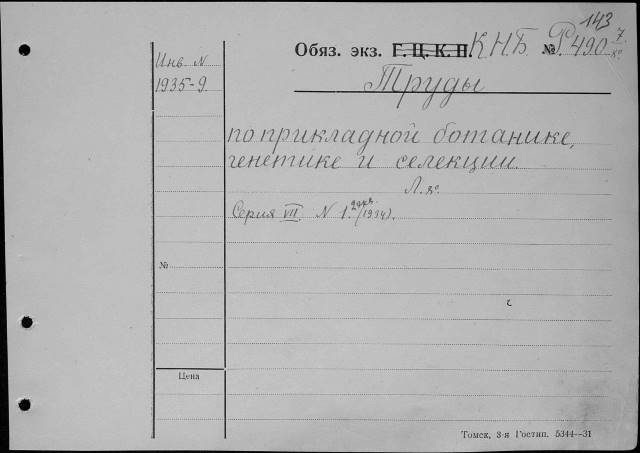 143
Обяз. экз. Г. Ц. К. П. К.Н.Б. № Р.490 7
Инв. N
1935-9.
Труды
по прикладной ботанике,
генетике и селекции.
Серия VII N 1 (1934).
№
Цена
Томск, 3-я Гостип. 5344—31